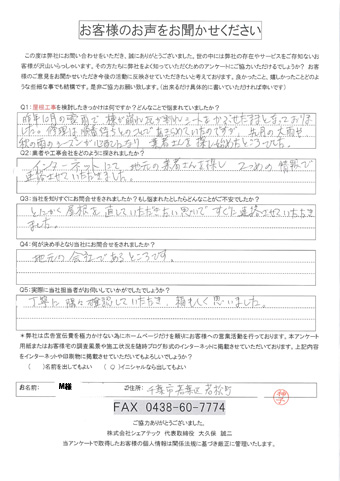 お客様のお声をお聞かせください
この度は弊社にお問い合わせをいただき、誠にありがとうございました。世の中には弊社の存在やサービスをご存知ないお
客様が沢山いらっしゃいます。その方たちに弊社をよく知っていただくためのアンケートにご協力いただけるでしょうか？ お
客様のご意見をお聞かせいただき今後の活動に反映させていただきたいと考えております。良かったこと、嬉しかったことどのよ
うな些細な事でも結構です。是非ご協力お願い致します。（出来るだけ具体的に書いていただければ幸いです）
Q1：屋根工事を検討したきっかけは何ですか？どんなことで悩まれていましたか？
昨年12月の
Q2：業者や工事会社をどのように探されましたか？
インターネットにて 地元の業者さんを探し 2つめの
連絡させていただきました。
Q3：当社を知りすぐにお問合せをされましたか？もし悩まれたとしたらどんなことがご不安でしたか？
とにかく屋根を直していただきたい思いですぐに連絡させていただき
ました。
Q4：何が決め手となり当社にお問合せをされましたか？
地元の会社であるところです。
Q5：実際に当社担当者がお伺いしていかがでしたでしょうか？
丁寧に 隅々確認していただき、頼もしく思いました。
＊弊社は広告宣伝費を極力かけない為にホームページだけを頼りにお客様への営業活動を行っております。本アンケート
用紙またはお客様宅の調査風景や施工状況を随時ブログ形式のインターネットに掲載させていただいています。上記内容
をインターネットや印刷物に掲載させていただいてもよろしいでしょうか？
（ ）名前を出してもよい （○）イニシャルなら出してもよい
お名前： M様 ご住所： 千葉市若葉区
FAX 0438-60-7774
ご協力ありがとうございました。
株式会社シェアテック 代表取締役 大久保 誠二
当アンケートで取得したお客様の個人情報は関係法規に基づき厳正に管理いたします。